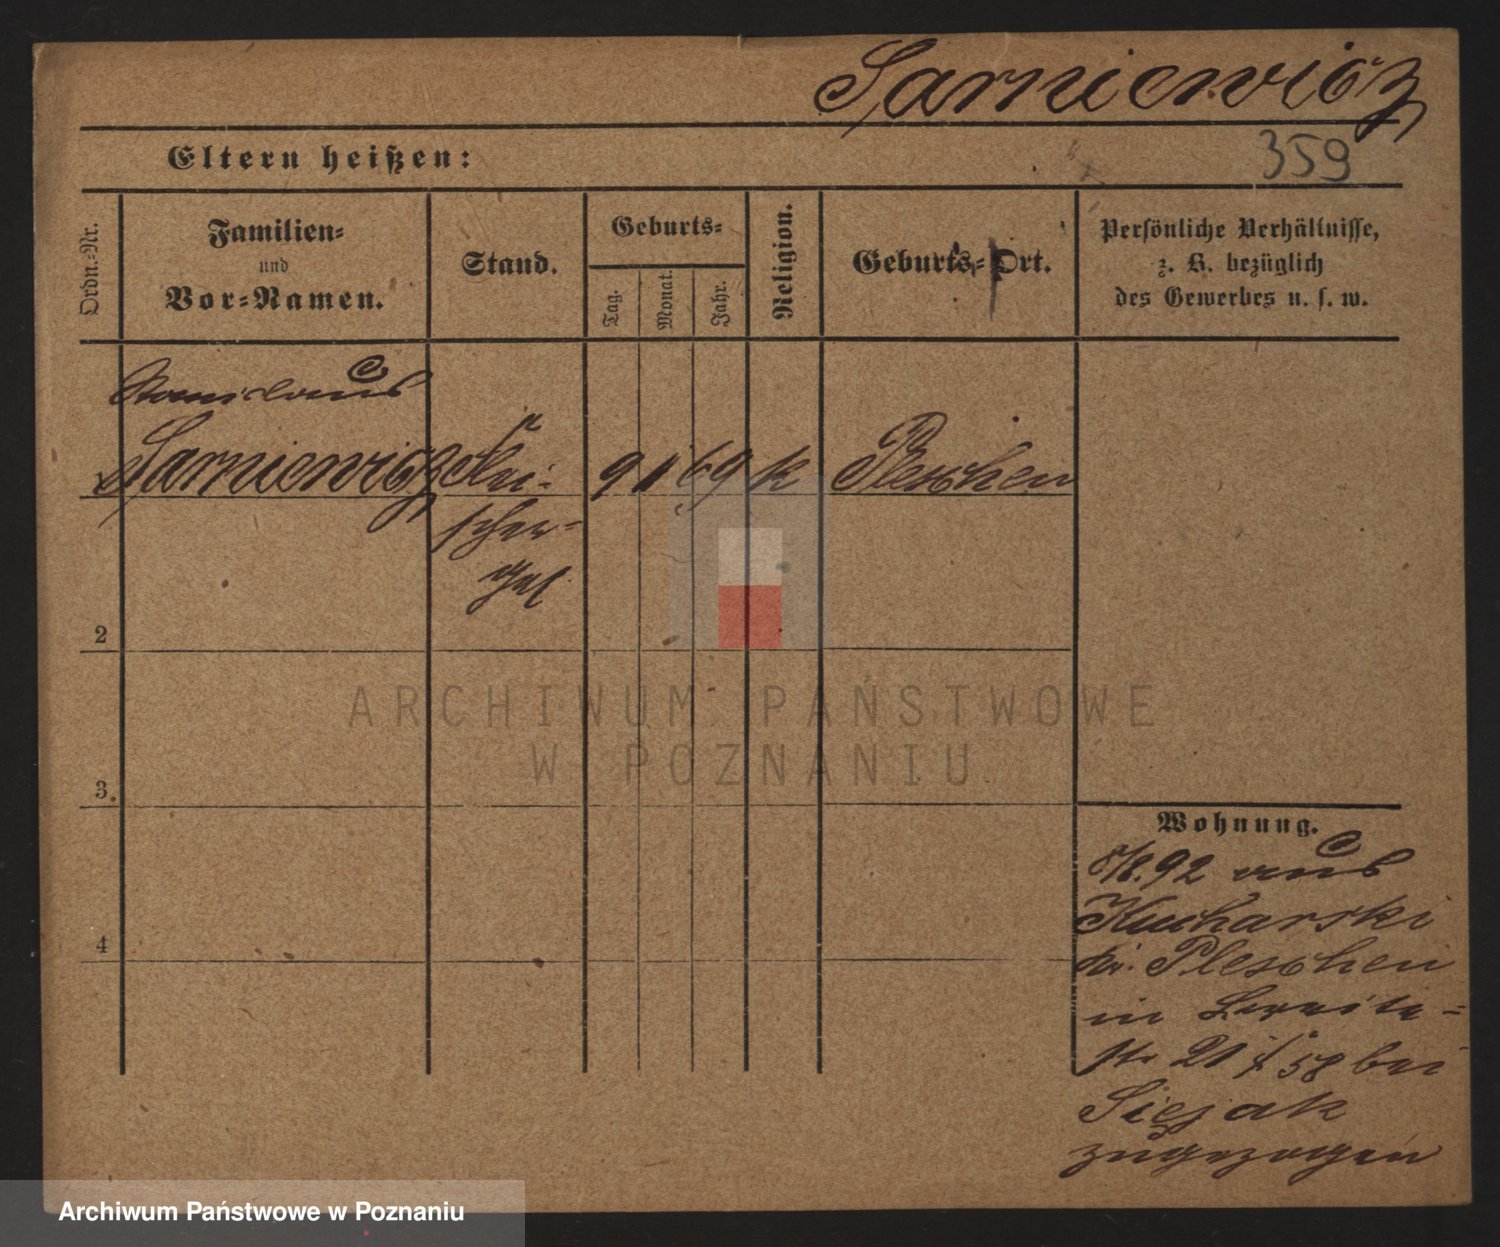 Sarniewicz
359
Eltern heißen:
Ordn.-Nr.
Familien-
und
Vor-Namen.
Stand.
Geburts-
Tag.
Monat.
Jahr.
Religion.
Geburts-Ort.
Persönliche Verhältnisse,
z. B. bezüglich
des Gewerbes u. s. w.
Stanislaus
Sarniewicz
Flei-
scher-
gel
9 1 69 k
Pleschen
2
3.
4
Wohnung.
92 aus
Kucharski
Kr. Pleschen
in Breite-
str 21 / 58 bei
Siejak
zugezogen
ARCHIWUM PAŃSTWOWE
W POZNANIU
Archiwum Państwowe w Poznaniu